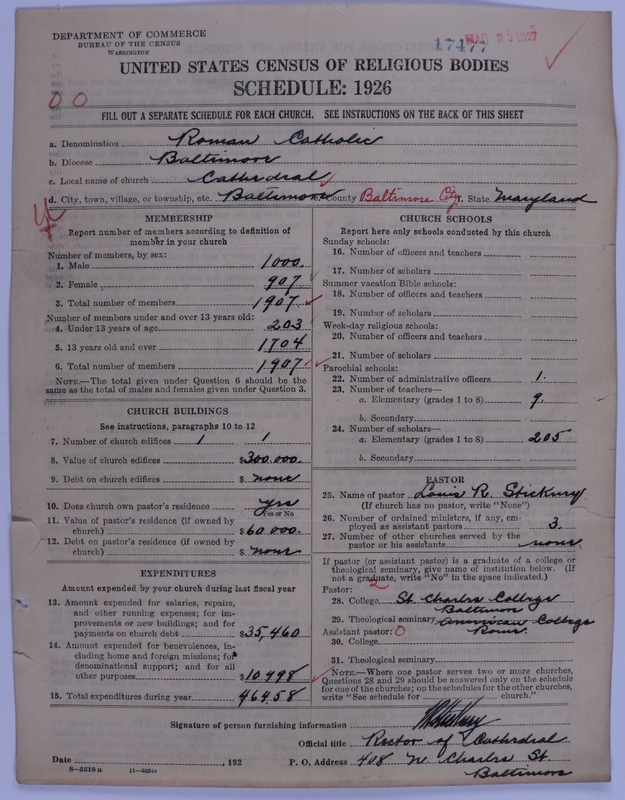 DEPARTMENT OF COMMERCE
BUREAU OF THE CENSUS
WASHINGTON
17477
MAR 23 1927
UNITED STATES CENSUS OF RELIGIOUS BODIES
SCHEDULE: 1926
0 0
FILL OUT A SEPARATE SCHEDULE FOR EACH CHURCH. SEE INSTRUCTIONS ON THE BACK OF THIS SHEET
a. Denomination Roman Catholic
b. Diocese Baltimore
c. Local name of church Cathedral
d. City, town, village, or township, etc. Baltimore County Baltimore City. State Maryland
MEMBERSHIP
Report number of members according to definition of
member in your church
Number of members, by sex:
1. Male 1000.
2. Female 907
3. Total number of members 1907
Number of members under and over 13 years old:
4. Under 13 years of age 203
5. 13 years old and over 1704
6. Total number of members 1907
NOTE.—The total given under Question 6 should be the
same as the total of males and females given under Question 3.
CHURCH BUILDINGS
See instructions, paragraphs 10 to 12
7. Number of church edifices 1 1
8. Value of church edifices $300.000.
9. Debt on church edifices $ none
10. Does church own pastor's residence yes
Yes or No
11. Value of pastor's residence (if owned by
church) $60.000.
12. Debt on pastor's residence (if owned by
church) $ none
EXPENDITURES
Amount expended by your church during last fiscal year
13. Amount expended for salaries, repairs,
and other running expenses; for im-
provements or new buildings; and for
payments on church debt $35,460
14. Amount expended for benevolences, in-
cluding home and foreign missions; for
denominational support; and for all
other purposes $10998
15. Total expenditures during year $46458
CHURCH SCHOOLS
Report here only schools conducted by this church
Sunday schools:
16. Number of officers and teachers
17. Number of scholars
Summer vacation Bible schools:
18. Number of officers and teachers
19. Number of scholars
Week-day religious schools:
20. Number of officers and teachers
21. Number of scholars
Parochial schools:
22. Number of administrative officers 1.
23. Number of teachers—
a. Elementary (grades 1 to 8) 9.
b. Secondary
24. Number of scholars—
a. Elementary (grades 1 to 8) 205
b. Secondary
PASTOR
25. Name of pastor Louis R. Stickney
(If church has no pastor, write "None")
26. Number of ordained ministers, if any, em-
ployed as assistant pastors 3.
27. Number of other churches served by the
pastor or his assistants none
If pastor (or assistant pastor) is a graduate of a college or
theological seminary, give name of institution below. (If
not a graduate, write "No" in the space indicated.)
Pastor: 2
28. College St. Charles College
Baltimore
29. Theological seminary American College
Assistant pastor: 0 Rome.
30. College
31. Theological seminary
NOTE.—Where one pastor serves two or more churches,
Questions 28 and 29 should be answered only on the schedule
for one of the churches; on the schedules for the other churches,
write "See schedule for church."
Signature of person furnishing information
Official title Rector of Cathedral
Date , 192 P. O. Address 408 N. Charles St.
8—5518a 11—9054
Baltimore